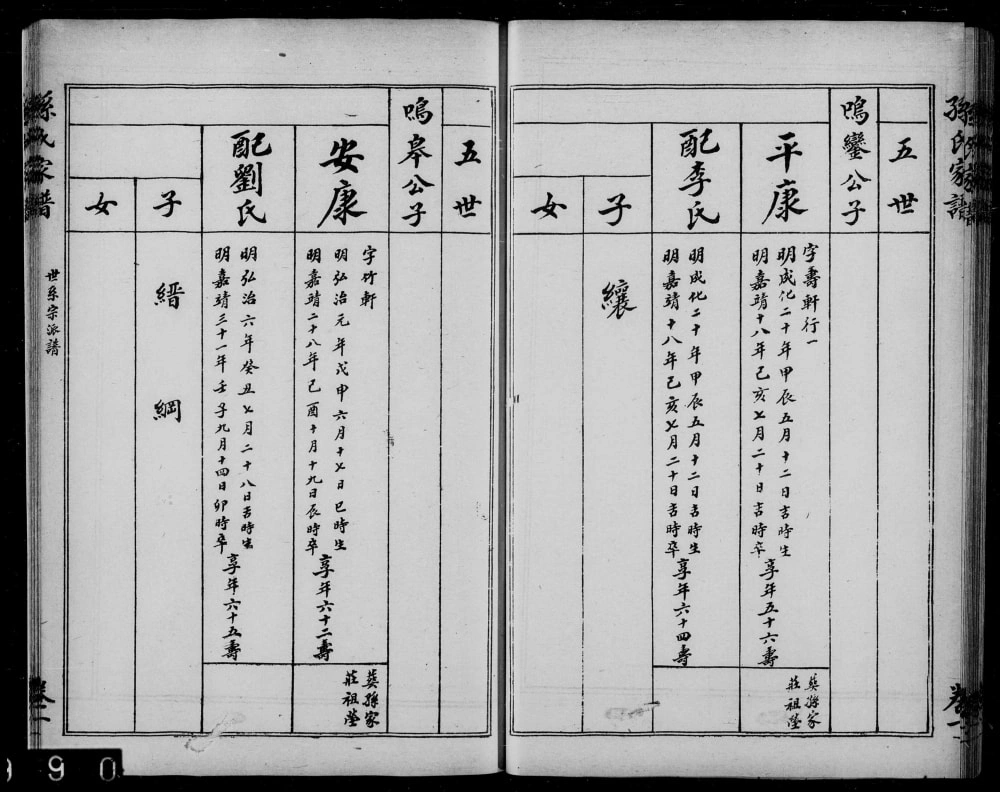 孫氏家譜
卷一
五世
鳴鑾公子
平康
字壽軒行一
明成化二十年甲辰五月十二日吉時生
明嘉靖十八年己亥七月二十日吉時卒
享年五十六壽
葬孫家
莊祖塋
配李氏
明成化二十年甲辰五月十二日吉時生
明嘉靖十八年己亥七月二十日吉時卒
享年六十四壽
子
纕
女
五世
鳴皋公子
安康
字竹軒
明弘治元年戊申六月十七日巳時生
明嘉靖二十八年己酉十月十九日辰時卒
享年六十二壽
葬孫家
莊祖塋
配劉氏
明弘治六年癸丑七月二十八日吉時生
明嘉靖三十一年壬子九月十四日卯時卒
享年六十五壽
子
縉
綱
女
孫氏家譜
世系宗派譜
卷一
990